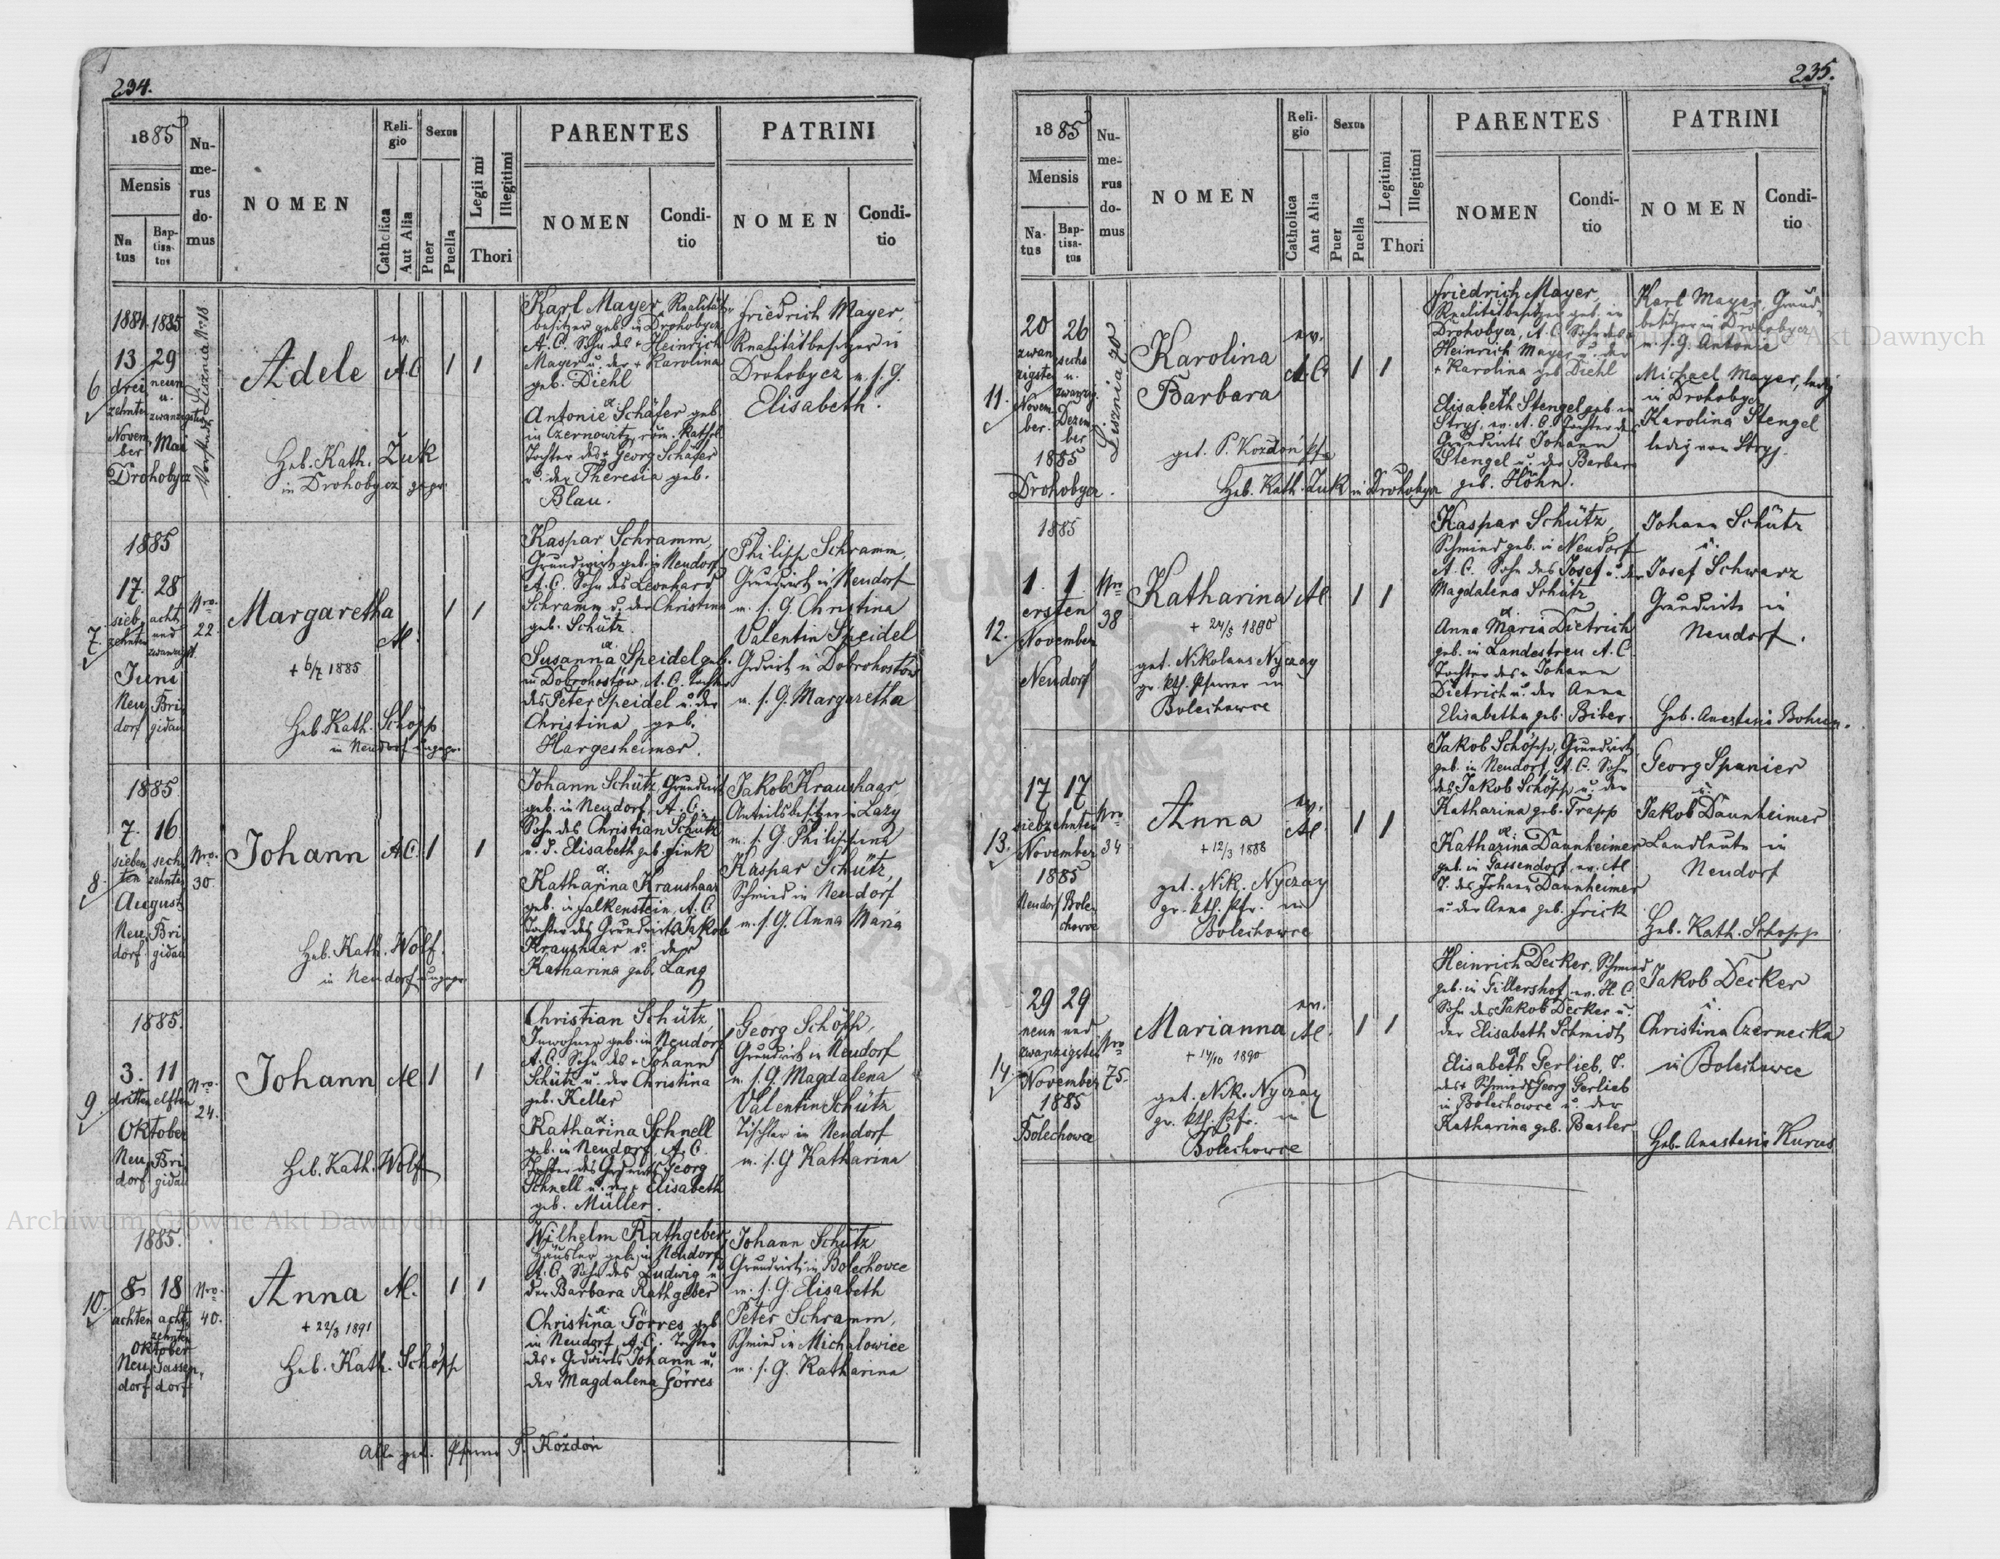 234.
1885
Mensis
Na
tus
Bap-
tisa-
tus
Nu-
me-
rus
do-
mus
NOMEN
Reli-
gio
Catholica
Aut Alia
Sexus
Puer
Puella
Legiti mi
Illegitimi
Thori
PARENTES
NOMEN
Condi-
tio
PATRINI
NOMEN
Condi-
tio
6
1884 1885
13 29
drei neun
zehnten u. zwanzigsten
Novem
ber Mai
Drohobycz
Vorstadt Lisznia Nro 18
Adele
ev.
A.C.
1 1
Heb. Kath. Zuk
in Drohobycz gepr.
Karl Mayer, Realitäten
besitzer geb. in Drohobycz
A. C. Sohn des + Heinrich
Mayer u. der + Karolina
geb. Diehl
&
Antonie Schäfer geb.
in Czernowitz, röm. kathol.
Tochter des + Georg Schäfer
u. der Theresia geb.
Blau.
Friedrich Mayer,
Realitätbesitzer in
Drohobycz u. s. G.
Elisabeth.
7.
1885
17. 28
sieb acht
zehnten und zwanzigst
Juni
Neu Bri
dorf gidau
Nro.
22.
Margaretha
A.C.
1 1
+ 6/7 1885
Heb. Kath. Schöpp
in Neudorf ungepr.
Kaspar Schramm,
Grundwirt geb. in Neudorf
A. C. Sohn des Leonhard
Schramm u. der Christina
geb. Schütz
&
Susanna Speidel geb.
in Dobrohostów, A. C. Tochter
des Peter Speidel u. der
Christina geb.
Hargesheimer.
Philipp Schramm,
Grundwirt in Neudorf
u. s. G. Christina
Valentin Speidel
Grdwirt in Dobrohostów
u. s. G. Margaretha
8.
1885
7. 16.
sieben sech
ten zehnten
August
Neu Bri
dorf. gidau
Nro.
30
Johann
A.C.
1 1
Heb. Kath. Wolf.
in Neudorf ungepr.
Johann Schütz, Grundwirt
geb. in Neudorf, A. C.
Sohn des Christian Schütz
u. d. Elisabeth geb. Fink
&
Katharina Kraushaar
geb. in Falkenstein, A. C.
Tochter des Grundwirts Jakob
Kraushaar u. der
Katharina geb. Lang
Jakob Kraushaar
Anteilsbesitzer in Lazy
u. s. G. Philippina
Kaspar Schütz,
Schmied in Neudorf
u. s. G. Anna Maria
9
1885.
3. 11
dritten elften
Oktober
Neu Bri
dorf. gidau
Nro.
24.
Johann
A.C.
1 1
Heb. Kath. Wolf
Christian Schütz,
Inwohner geb. in Neudorf
A. C. Sohn des + Johann
Schütz u. der Christina
geb. Keller
&
Katharina Schnell
geb. in Neudorf, A. C.
Tochter des Grdwirts Georg
Schnell u. der + Elisabeth
geb. Müller.
Georg Schöpp,
Grundwirt in Neudorf
u. s. G. Magdalena
Valentin Schütz
Tischler in Neudorf
u. s. G Katharina
10.
1885.
8 18
achten acht
zehnten
Oktober
Neu Gassen,
dorf dorf
Nro.
40.
Anna
A.C.
1 1
+ 22/3 1891
Heb. Kath. Schöpp
Wilhelm Rathgeber,
Häusler geb. in Neudorf,
A. C. Sohn des Ludwig u.
der Barbara Rathgeber
&
Christina Görres geb
in Neudorf, A. C. Tochter
des + Grdwirts Johann u.
der Magdalena Görres
Johann Schütz
Grundwirt in Bolechowce
u. s. G. Elisabeth
Peter Schramm,
Schmied in Michalowice
u. s. G. Katharina
Alle get. Pfarrer P. Kozdoń
235.
1885
Mensis
Na-
tus
Bap-
tisa-
tus
Nu-
me-
rus
do-
mus
NOMEN
Reli-
gio
Catholica
Aut Alia
Sexus
Puer
Puella
Legitimi
Illegitimi
Thori
PARENTES
NOMEN
Condi-
tio
PATRINI
NOMEN
Condi-
tio
11.
20 26
zwan sechs
zigsten u. zwanzig
Novem Dezem
ber. ber
1885
Drohobycz.
Lisznia 90
Karolina
Barbara
ev.
A.C.
1 1
get. P. Kozdoń Pfr
Heb. Kath. Zuk in Drohobycz
Friedrich Mayer,
Realitätbesitzer geb. in
Drohobycz, A. C. Sohn des +
Heinrich Mayer u. der
+ Karolina geb. Diehl
&
Elisabeth Stengel geb. in
Stryj, ev. A. C. Tochter des
Grundwirts Johann
Stengel u. der Barbara
geb. Höhn.
Karl Mayer, Grund-
besitzer in Drohobycz
u. s. G. Antonie
Michael Mayer, ledig
in Drohobycz
Karolina Stengel
ledig von Stryj.
12.
1885
1. 1
ersten
November
Neudorf
Nro
38
Katharina
A.C.
1 1
+ 24/5 1890
get. Nikolaus Nyczay
gr. kth. Pfarrer in
Bolechowce
Kaspar Schütz,
Schmied geb. in Neudorf
A. C. Sohn des Josef u. der
Magdalena Schütz
&
Anna Maria Dietrich
geb. in Landestreu A. C.
Tochter des + Johann
Dietrich u. der Anna
Elisabetha geb. Biber.
Johann Schütz
u.
Josef Schwarz
Grundwirte in
Neudorf.
Heb. Anastasia Bohun.
13.
17 17
siebzehnten
November
1885
Neudorf Bole
chowce
Nro
34
Anna
ev.
A.C.
1 1
+ 12/3 1888
get. Nik. Nyczay
gr. kth. Pfr. in
Bolechowce
Jakob Schöpp, Grundwirt
geb. in Neudorf, A. C. Sohn
des Jakob Schöpp u. der
Katharina geb. Trapp
&
Katharina Dannheimer
geb. in Gassendorf, ev. A.C.
T. des Johann Dannheimer
u. der Anna geb. Frick
Georg Spanier
u.
Jakob Dannheimer
Landleute in
Neudorf
Heb. Kath. Schopp
14.
29 29
neun und
zwanzigsten
November
1885
Bolechowce
Nro
75.
Marianna
ev.
A.C.
1 1
+ 14/10 1890
get. Nik. Nyczay
gr. kth. Pfr. in
Bolechowce
Heinrich Decker, Schmied
geb. in Gillershof, ev. H. C.
Sohn des Jakob Decker u.
der Elisabeth Schmidt
&
Elisabeth Gerlieb, T.
des + Schmieds Georg Gerlieb
in Bolechowce u. der
Katharina geb. Basler
Jakob Decker
u.
Christina Czernecka
in Bolechowce
Heb. Anastasia Kurus
Archiwum Główne Akt Dawnych
Archiwum Główne Akt Dawnych